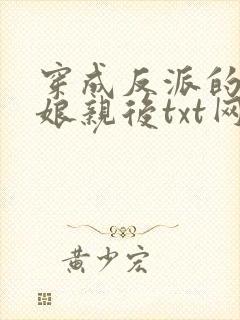 穿成反派的
娘親後txt网
黄少宏